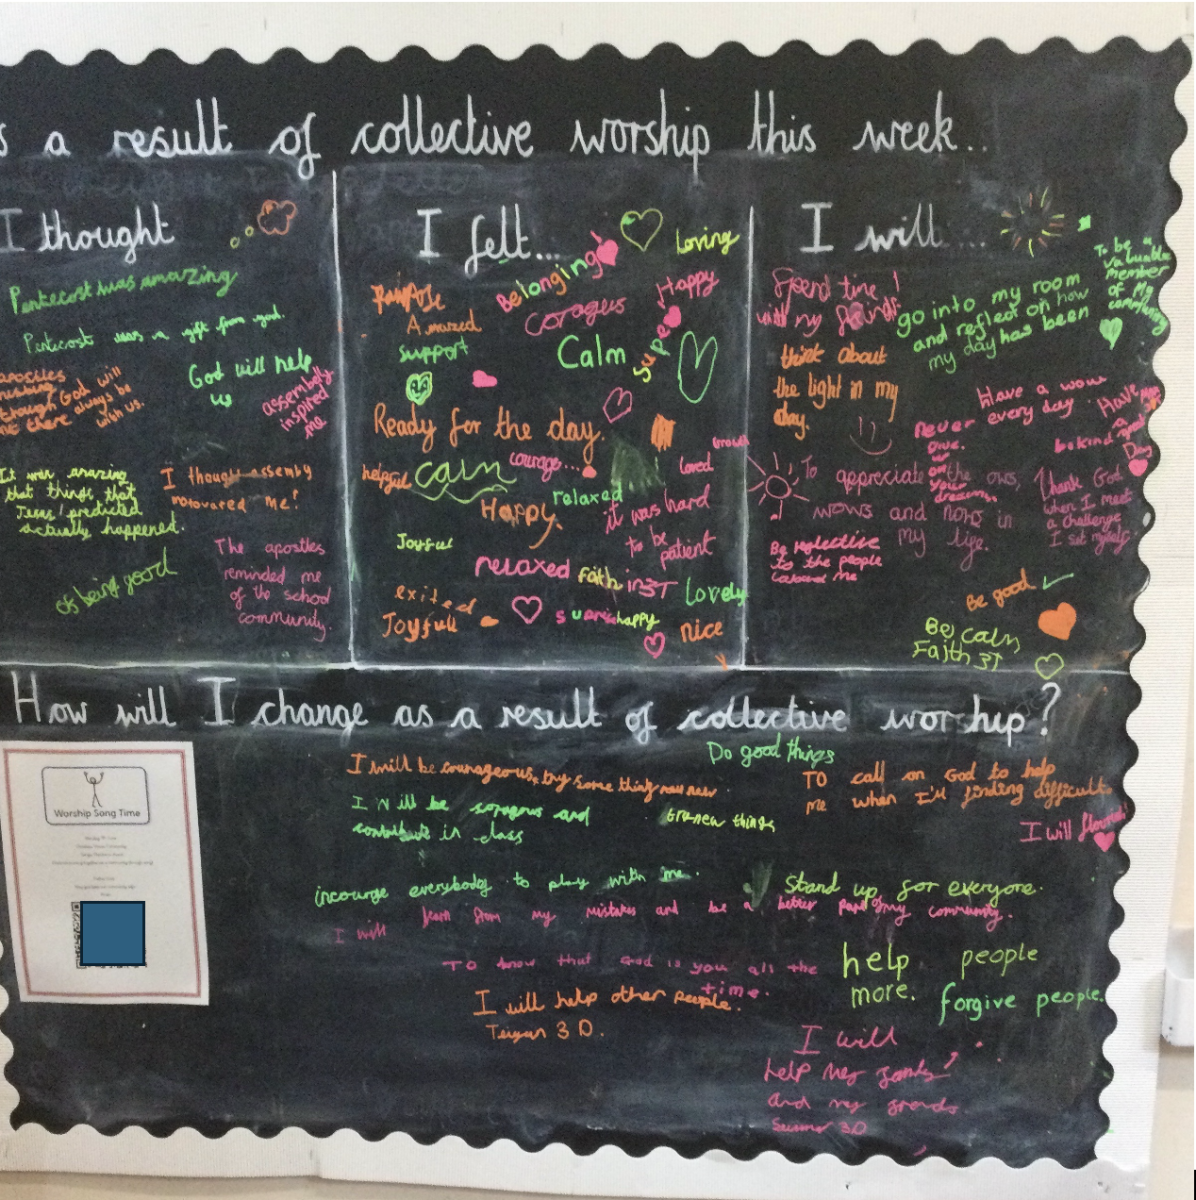 a result of collective worship this week..
I thought
Pentecost was amazing
Pentecost was a gift from god.
God will help
us
assembly
inspired
me
apostles
though God will
there always be
with us.
It was amazing
that things that
Jesus predicted
actually happened.
I thought assemby
me!
of being good
The apostles
reminded me
of the school
community.
I felt...
Belonging
loving
Happy
coragus
Amazed
support
Calm
super
Ready for the day.
helpful
calm
courage...
Growth
loved
relaxed
Happy
it was hard
to be
patient
Joyful
relaxed
faith in 3T
Lovely
exited
Joyfull
happy
nice
I will...
Spend time
with my
think about
the light in my
day.
go into my room
and reflect on how
my day has been
To be a
valuable
member
of my
community
Have a wow
every day
never
give
up
on
your
dreams
Have
a
good
Day
be kind
To appreciate the ows,
wows and nows in
my life.
Thank God
when I meet
a challenge
I set myself.
Be reflective
to the people
around me
Be good
Be calm
Faith 3T
How will I change as a result of collective worship?
Worship Song Time
Do good things
I will be courageous, try some thing new
TO call on God to help
me when I'm finding difficult.
I will be coragous and
contribute in class
new things
I will
incourge everybody to play with me.
Stand up for everyone.
I will learn from my mistakes and be a better part of my community.
To know that God is you all the
time.
help people
more.
forgive people.
I will help other people.
3D.
I will
help my family
and my
3D